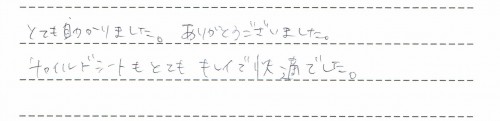 とても助かりました。ありがとうございました。
チャイルドシートもとてもキレイで快適でした。